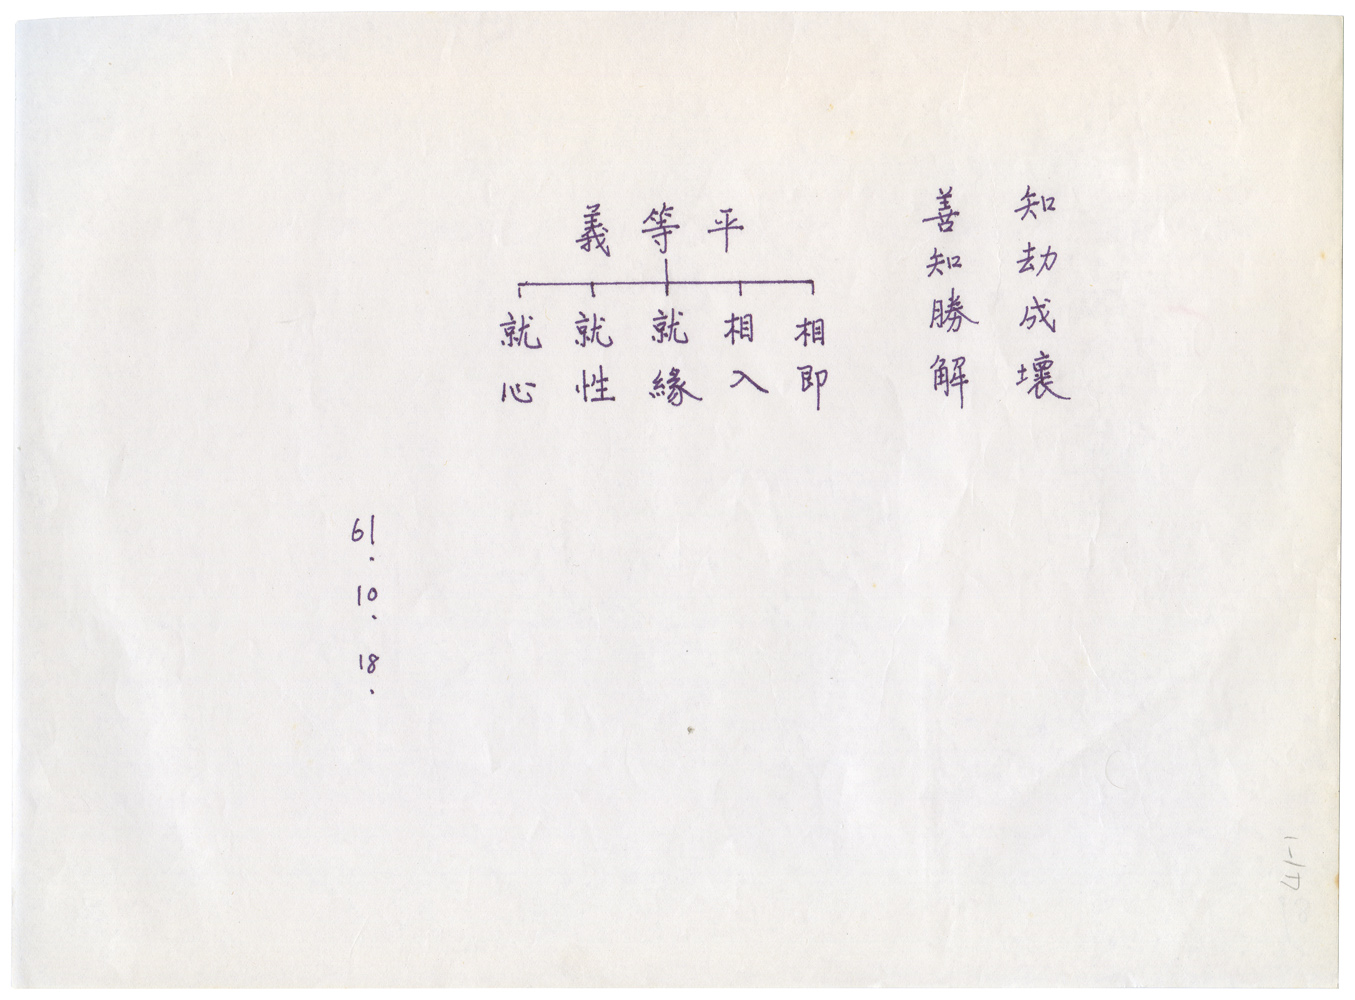 知劫成壞
善知勝解
平等義
相即
相入
就緣
就性
就心
61.10.18.